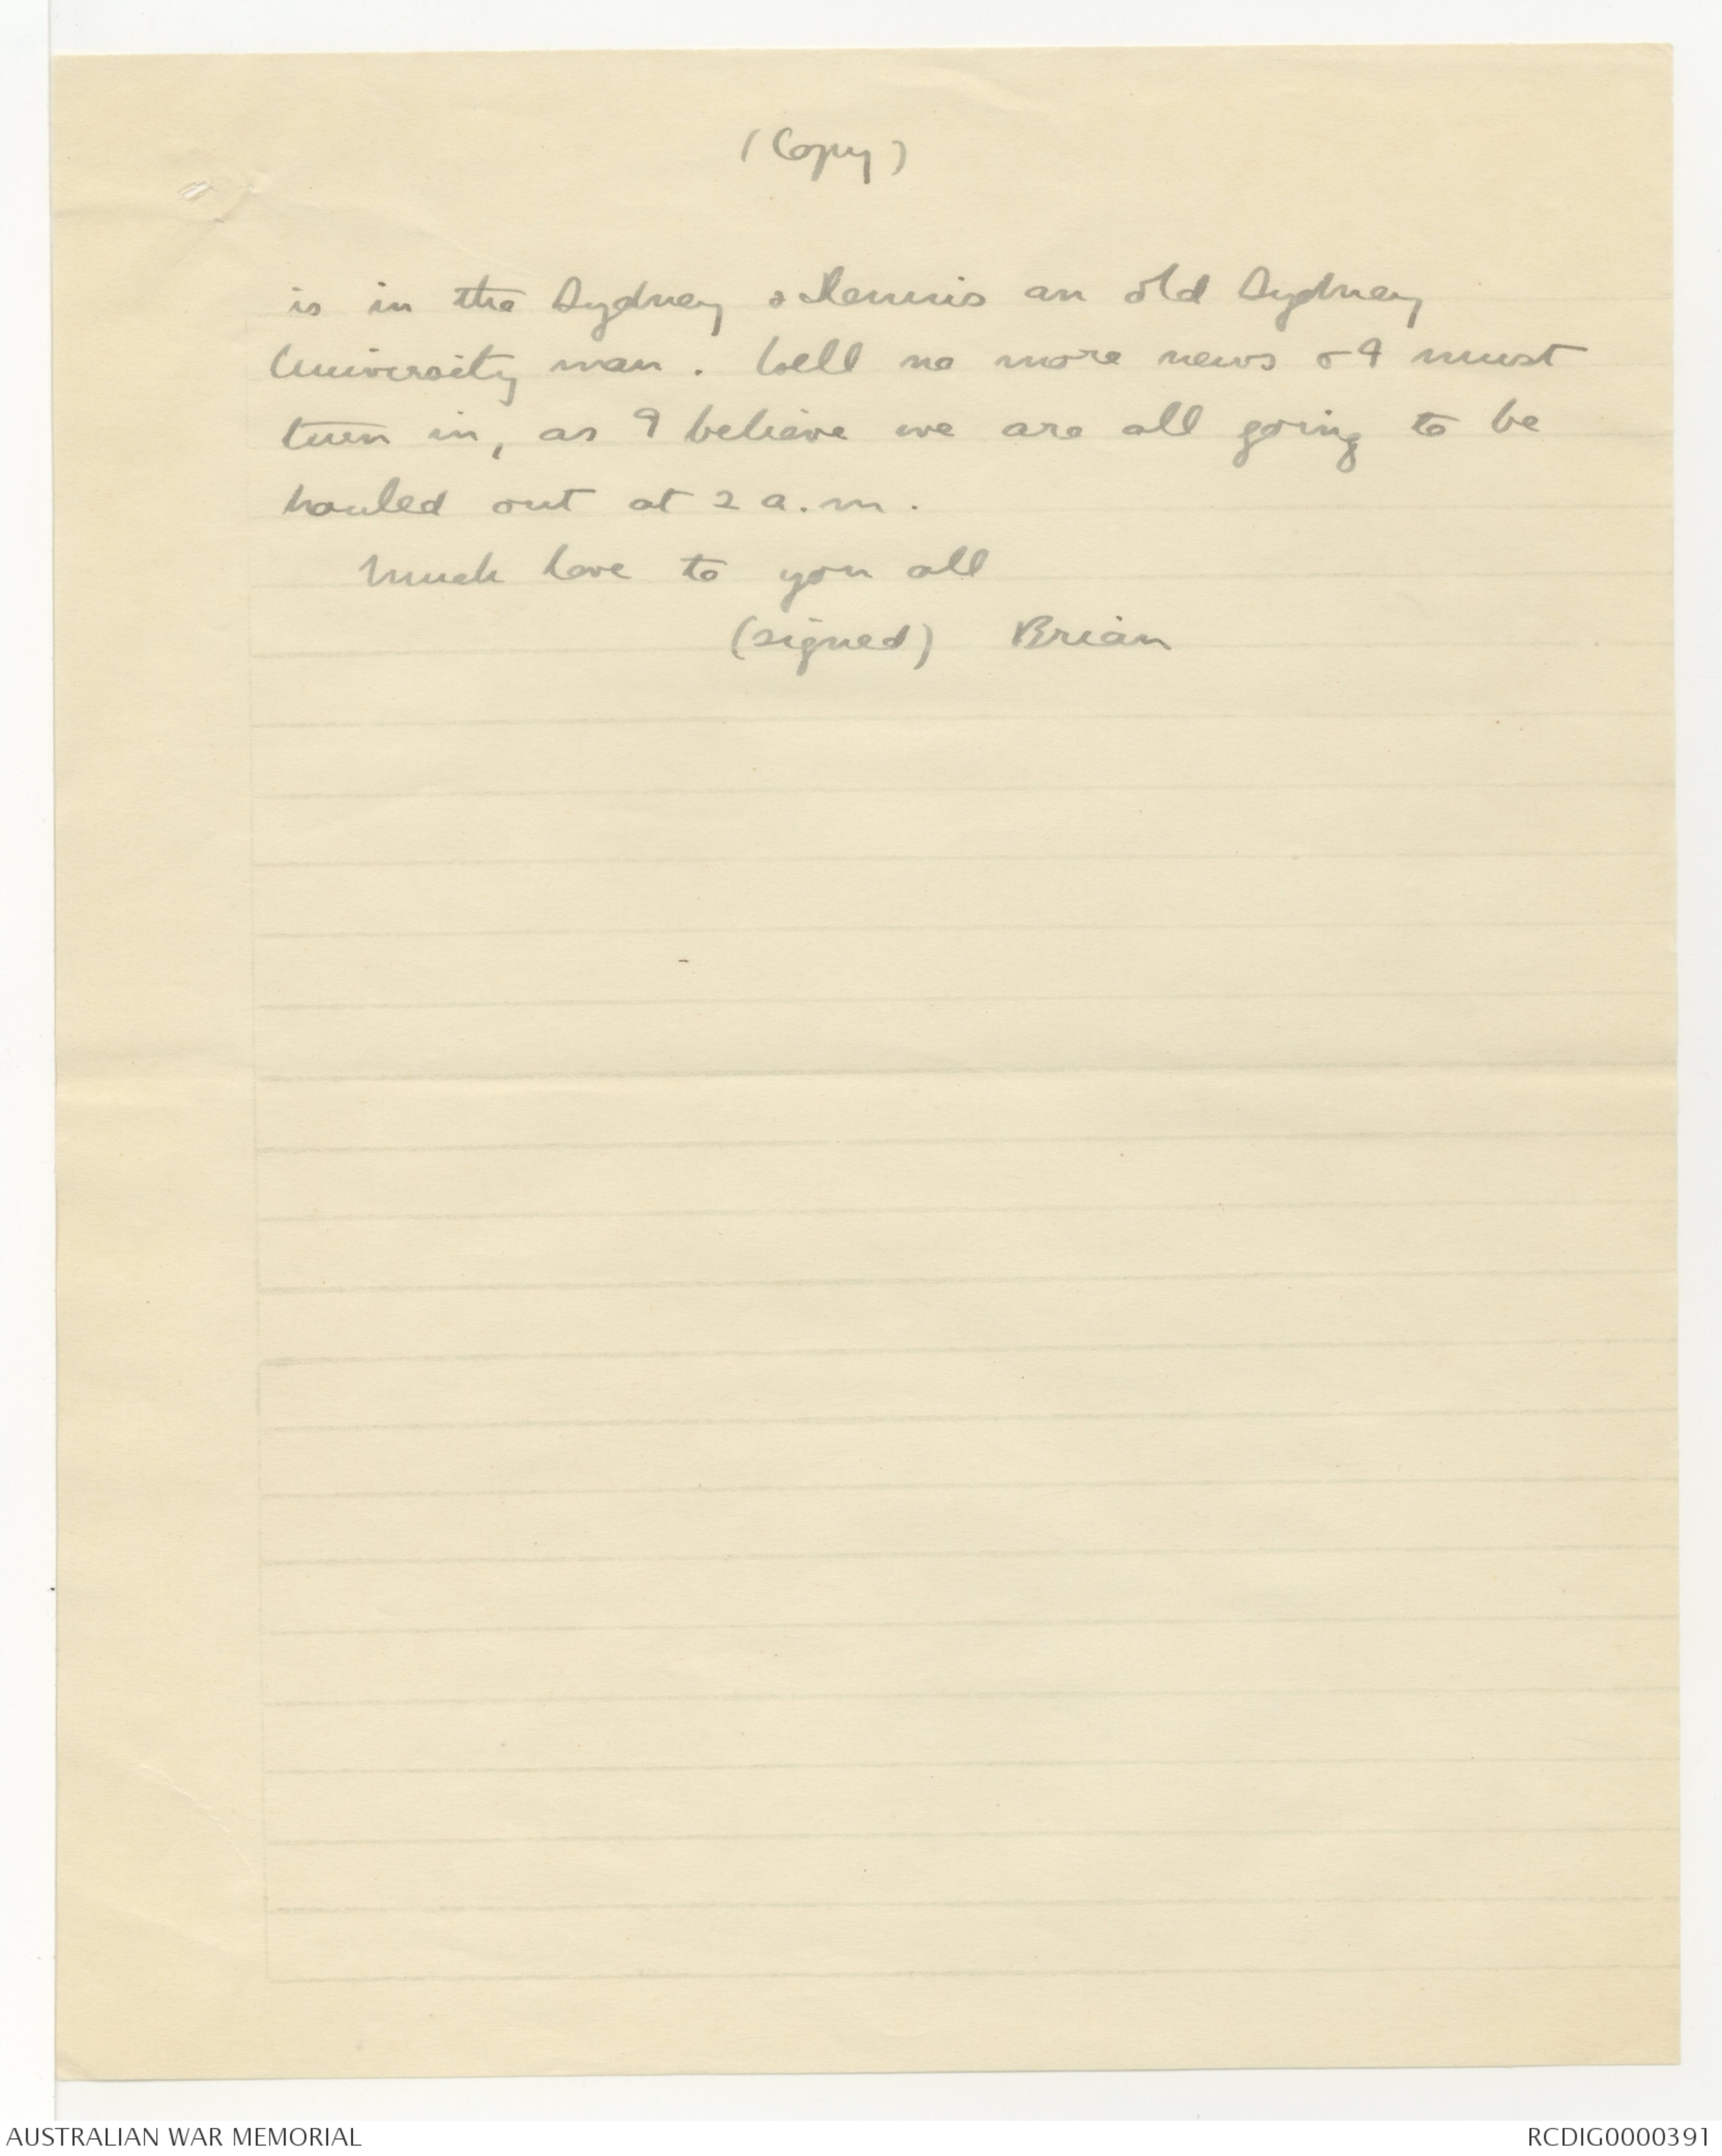 (Copy)
is in the Sydney & Dennis an old Sydney
University man. Well no more news & I must
turn in, as I believe we are all going to be
hauled out at 2 a.m.
Much love to you all
(signed) Brian
AUSTRALIAN WAR MEMORIAL
RCDIG0000391